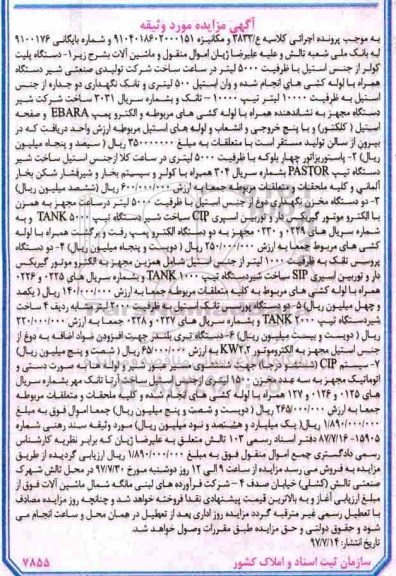 آگهی مزایده مورد وثیقه
به موجب پرونده اجرائی کلاسه ع/۳۸۳۳ و مکانیزه ۹۱۰۴۰۱۸۶۰۲۰۰۰۱۵۱ و شماره بایگانی ۹۱۰۰۱۷۶
له بانک ملی شعبه تالش و علیه علیرضا ژیان اموال منقول و ماشین آلات بشرح زیر ۱- دستگاه پلیت
کولر از جنس استیل با ظرفیت ۵۰۰۰ لیتر در ساعت ساخت شرکت تولیدی صنعتی شیر دستگاه
همراه با لوله کشی های انجام شده و وان استیل ۵۰۰ لیتری و تانک نگهداری دو جداره از جنس
استیل به ظرفیت ۱۰۰۰۰ لیتر تیپ ۱۰۰۰۰ - تانک و بشماره سریال ۳۰۳۱ ساخت شرکت شیر
دستگاه مجهز به نشاندهنده همراه با لوله کشی های مربوطه و الکترو پمپ EBARA و صفحه
استیل ( کلکتور) و با پنج خروجی و انشعاب و لوله های استیل مربوطه ارزش واحد دریافت که در
بیرون از سالن تولید مستقر است با متعلقات به مبلغ ۳۵۰۰۰۰۰۰۰ ریال ( سیصد و پنجاه میلیون
ریال) ۲- پاستوریزاتور چهار بلوکه با ظرفیت ۵۰۰۰ لیتری در ساعت کلا ازجنس استیل ساخت شیر
دستگاه تیپ PASTOR شماره سریال ۳۰۴ همراه با کولر و سیستم بخار و شیرفشار شکن بخار
آلمانی و کلیه ملحقات و متعلقات مربوطه جمعا به ارزش ۶۰۰/۰۰۰/۰۰۰ ریال (ششصد میلیون ریال)
۳- دو دستگاه مخزن نگهداری دوغ از جنس استیل با ظرفیت ۵۰۰۰ لیتر درساعت مجهز به همزن
با الکترو موتور گیربکس دار و توربین اسپری CIP ساخت شیر دستگاه تیپ TANK ۵۰۰۰ و به
شماره سریال های ۰۲۲۹ و ۰۲۳۰ مجهز به دو دستگاه الکترو پمپ رفت و برگشت همراه با لوله
کشی های مربوط جمعا به ارزش ۲۵۰/۰۰۰/۰۰۰ ریال ( دویست و پنجاه میلیون ریال) ۴- دو دستگاه
پروسس تانک به ظرفیت ۱۰۰۰ لیتر از جنس استیل شامل همزن مجهز به الکترو موتور گیربکس
دار و توربین اسپری SIP ساخت شیردستگاه تیپ TANK ۱۰۰۰ و بشماره سریال های ۰۲۲۵ و ۰۲۲۶
همراه با لوله کشی های مربوط به کلیه متعلقات مربوطه جمعا به ارزش ۱۴۰/۰۰۰/۰۰۰ ریال ( یکصد
و چهل میلیون ریال) ۵- دو دستگاه پورس تانک استیل به ظرفیت ۲۰۰۰ لیتر مشابه ردیف ۴ ساخت
شیردستگاه تیپ TANK ۲۰۰۰ و بشماره سریال های ۰۲۲۷ و ۰۲۲۸ جمعا به ارزش ۲۲۰/۰۰۰/۰۰۰
ریال ( دویست و بیست میلیون ریال) ۶-دستگاه تری بلندر جهت افزودن مواد اضافه به دوغ از
جنس استیل مجهز به الکتروموتور KW۲.۲ به ارزش ۶۵/۰۰۰/۰۰۰ ریال ( شصت و پنج میلیون ریال)
۷- سیستم CIP (شستشو درجا) جهت شستشوی مسیر عبور شیر و لوله ها به صورت دستی و
اتوماتیک مجهز به سه عدد مخزن ۱۵۰۰ لیتری ازجنس استیل ساخت آرتا تانک مهر بشماره سریال
های ۰۱۲۵ و ۰۱۲۶ و ۱۲۷ همراه با لوله کشی های انجام شده و کلیه ملحقات و متعلقات مربوطه
جمعا به ارزش ۲۶۵/۰۰۰/۰۰۰ ریال ( دویست و شصت و پنج میلیون ریال) جمعا اموال فوق به مبلغ
۱/۸۹۰/۰۰۰/۰۰۰ ریال( یک میلیارد و هشتصد و نود میلیون ریال) مورد وثیقه سند رهنی شماره
۱۵۹۰۵-۸۷/۷/۱۶ دفتر اسناد رسمی ۱۰۳ تالش متعلق به علیرضا ژیان که برابر نظریه کارشناس
رسمی دادگستری جمع اموال منقول فوق به مبلغ ۱/۸۹۰/۰۰۰/۰۰۰ ریال ارزیابی گردیده از طریق
مزایده به فروش می رسد مزایده از ساعت ۹ الی ۱۲ روز دوشنبه مورخ ۹۷/۷/۳۰ در محل تالش شهرک
صنعتی تالش (کشلی) خیابان صدف ۴ - شرکت فرآورده های لبنی مانگه شمال ماشین آلات فوق از
مبلغ ارزیابی آغاز و به بالاترین قیمت پیشنهادی نقدا فروخته خواهد شد و چنانچه روز مزایده مصادف
با تعطیل رسمی غیر مترقبه گردد مزایده روز اداری بعد از تعطیل در همان محل و ساعت انجام می
شود و حقوق دولتی و حق مزایده طبق مقررات وصول خواهد شد.
تاریخ انتشار: ۹۷/۷/۱۴
سازمان ثبت اسناد و املاک کشور ۷۸۵۵